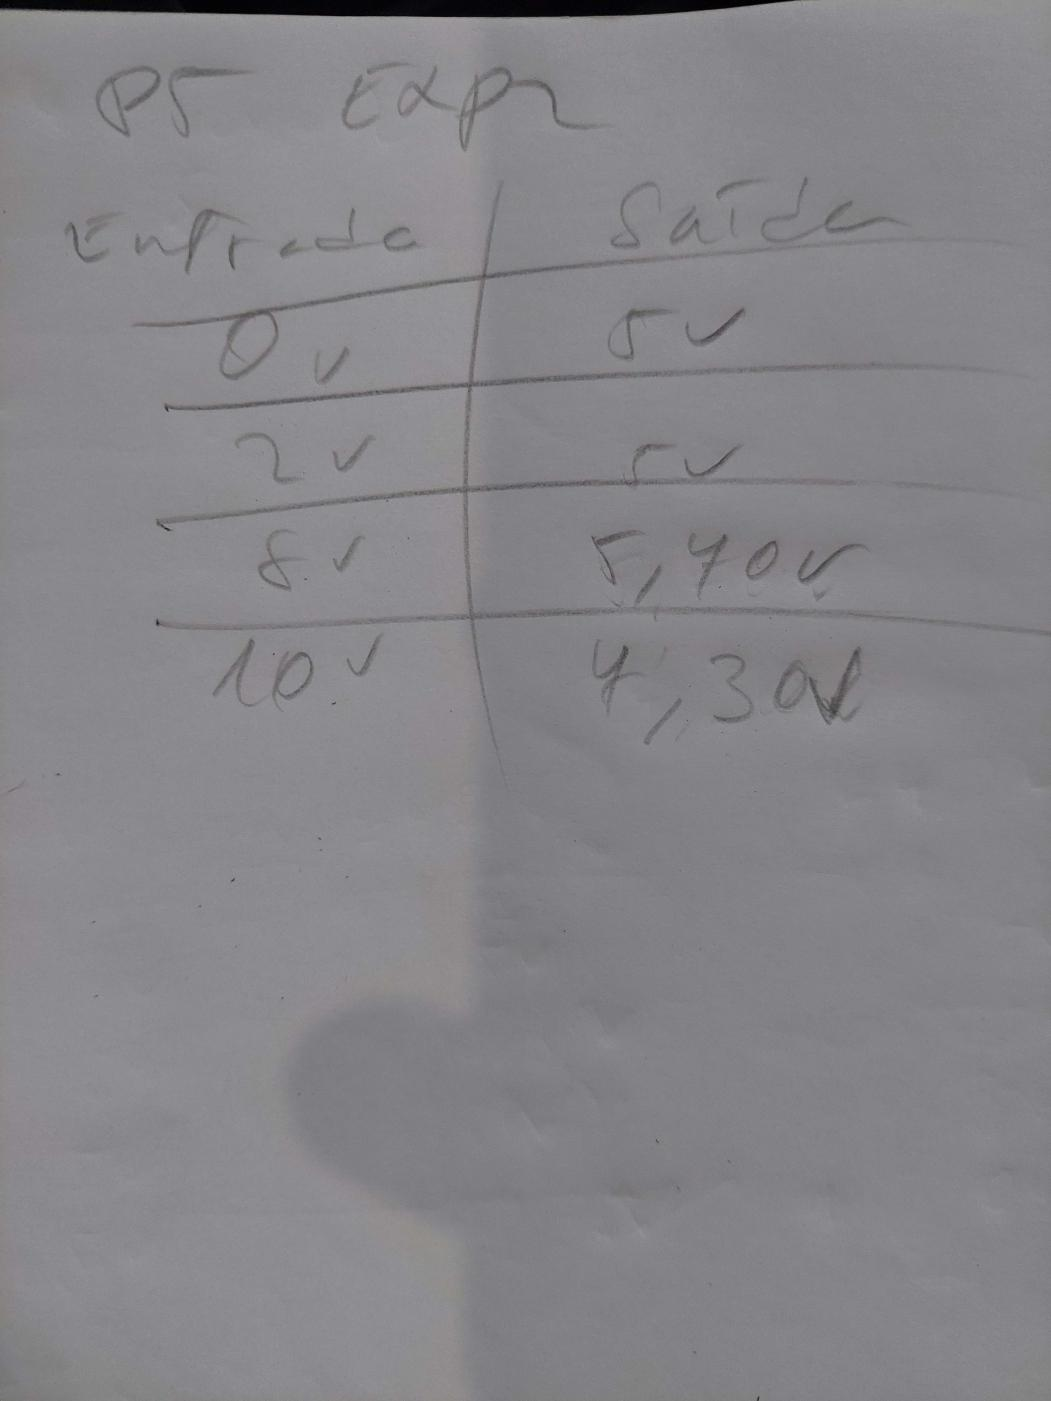 P5 Exp2
Entrada Saída
0v 5v
2v 5v
8v 5,40v
10v 7,30v